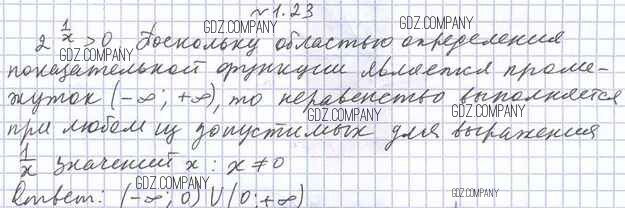 №1.23
2^(1/x) > 0 Поскольку областью определения
показательной функции является проме-
жуток (-∞; +∞), то неравенство выполняется
при любом из допустимых для выражения
1/x значений x: x ≠ 0
Ответ: (-∞; 0) U (0; +∞)
GDZ.COMPANY
GDZ.COMPANY
GDZ.COMPANY
GDZ.COMPANY
GDZ.COMPANY
GDZ.COMPANY
GDZ.COMPANY
GDZ.COMPANY
GDZ.COMPANY
GDZ.COMPANY